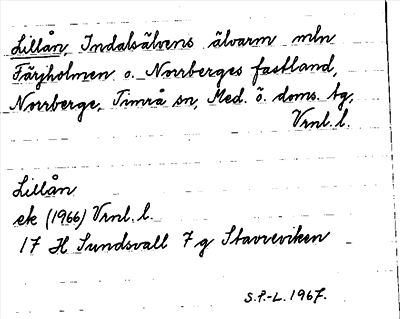 Lillån, Indalsälvens älvarm mln
Färjholmen o. Norrberges fastland,
Norrberge, Timrå sn, Med. ö. doms. tg,
Vrnl. l.
Lillån
ek (1966) Vrnl. l.
17 H Sundsvall 7 g Stavreviken
S.P.-L. 1967.